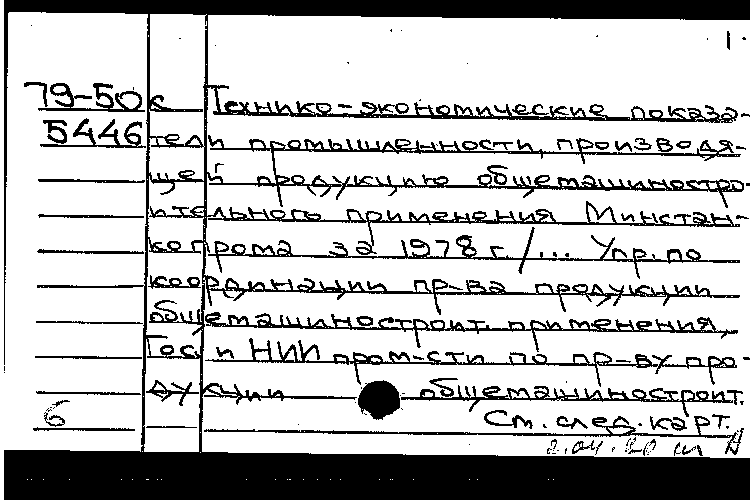 1.
79-50к Технико-экономические показа-
5446 тели промышленности, производя-
щей продукцию общемашиностро-
ительного применения Минстан-
копрома за 1978 г./... Упр. по
координации пр-ва продукции
общемашиностроит. применения,
Гос. и НИИ пром-сти по пр-ву про-
дукции общемашиностроит.
6 См. след. карт.